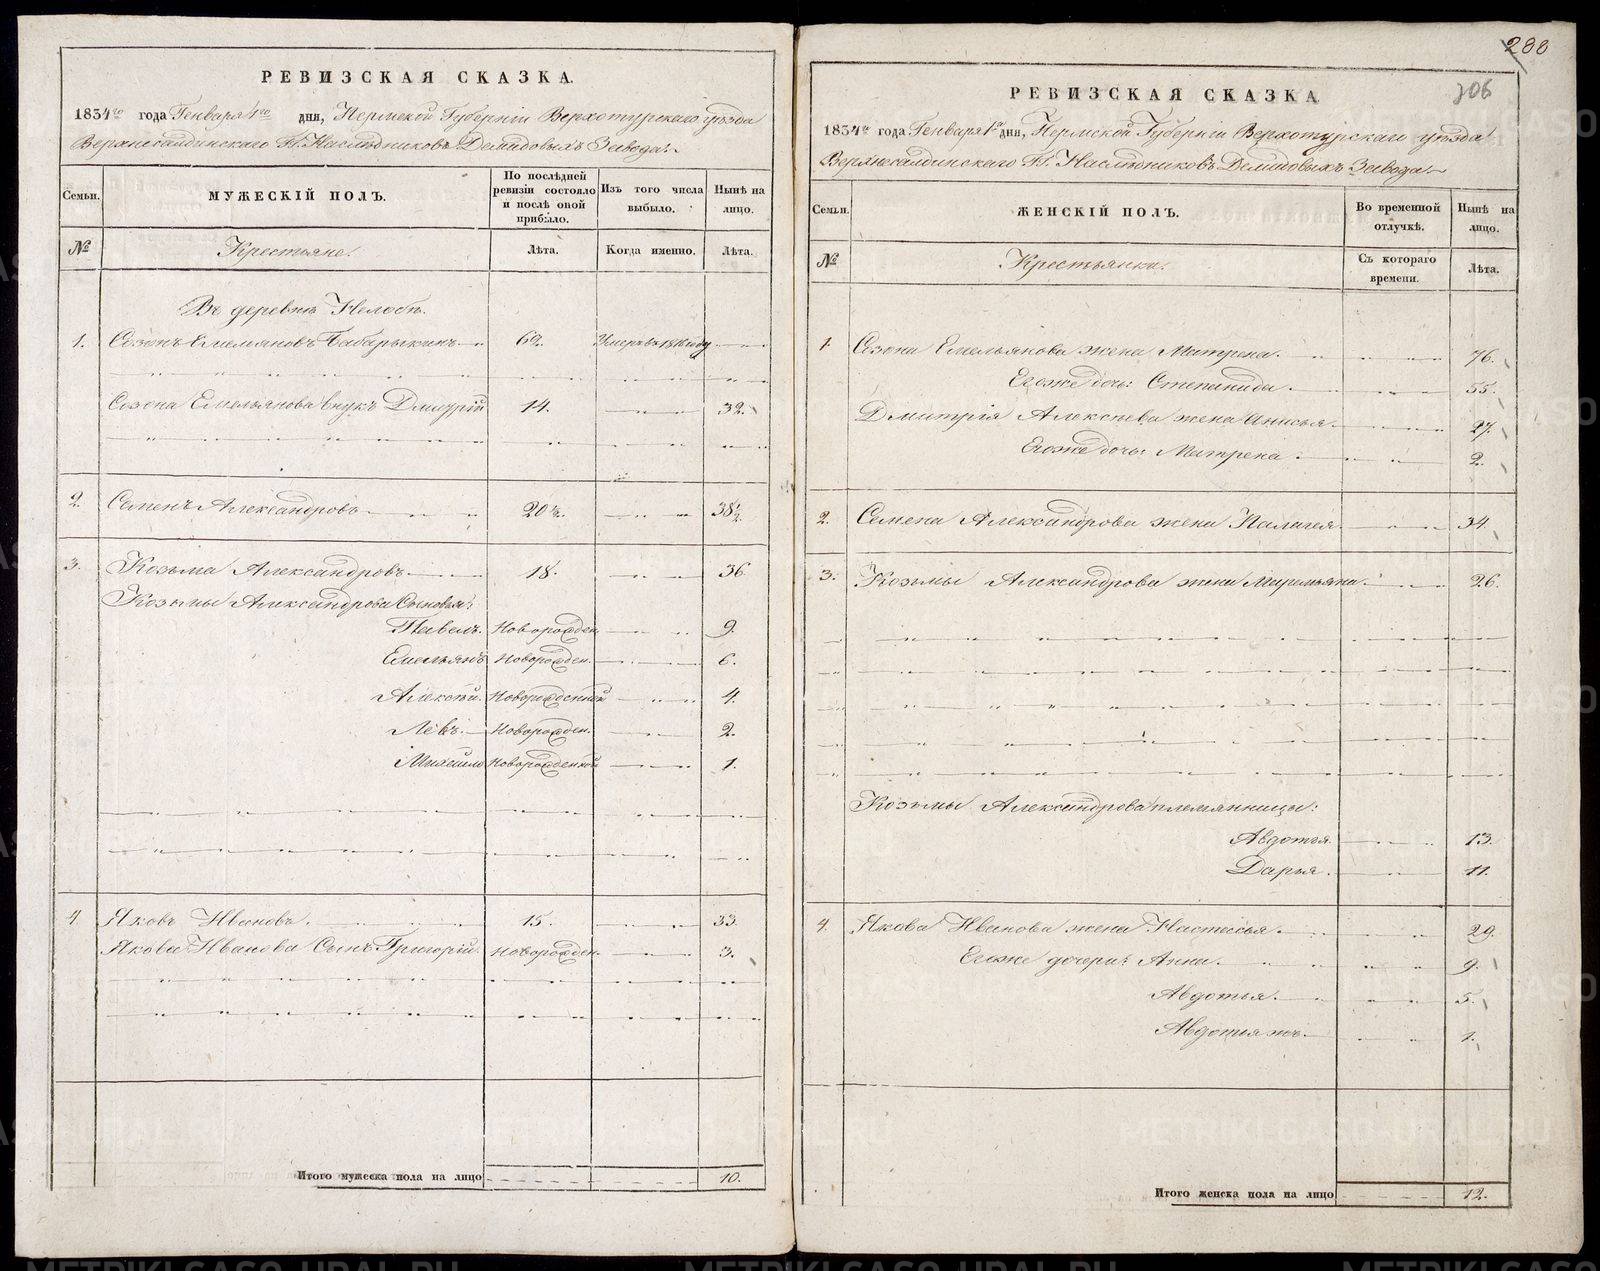 РЕВИЗСКАЯ СКАЗКА.
1834го года Генваря 1го дня, Пермской Губерніи Верхотурскаго уѣзда
Верхнесалдинскаго Гг. Наслѣдниковъ Демидовыхъ Завода.
Семьи.
МУЖЕСКІЙ ПОЛЪ.
По послѣдней ревизіи состояло и послѣ оной прибыло.
Изъ того числа выбыло.
Нынѣ на лицо.
№
Крестьяне.
Лѣта.
Когда именно.
Лѣта.
Въ деревнѣ Нелобѣ.
1. Созонъ Емельяновъ Бабарыкинъ 62. Умеръ въ 1818 году
Созона Емельянова внукъ Дмитрій 14. 32.
2. Семенъ Александровъ 20½. 38½.
3. Козьма Александровъ 18. 36
Козьмы Александрова Сыновья:
Павелъ. Новорожден. 9.
Емельянъ Новорожден. 6.
Алексѣй. Новорожденной 4.
Левъ. Новорожден. 2.
Михайло Новорожденной 1.
4 Яковъ Ивановъ. 15. 33.
Якова Иванова Сынъ Григорій. Новорожден. 3.
Итого мужеска пола на лицо 10.
288
206
РЕВИЗСКАЯ СКАЗКА
1834го года Генваря 1го дня, Пермской Губерніи Верхотурскаго уѣзда
Верхнесалдинскаго Гг. Наслѣдниковъ Демидовыхъ Завода
Семьи.
ЖЕНСКІЙ ПОЛЪ.
Во временной отлучкѣ.
Нынѣ на лицо.
№
Крестьянки.
Съ котораго времени.
Лѣта.
1. Созона Емельянова жена Матрена. 76.
Егоже дочь: Степанида. 55.
Дмитрія Алексѣева жена Анисья. 27.
Егоже дочь: Матрена. 2.
2. Семена Александрова жена Палагея 34.
3. Козьмы Александрова жена Маремьяна. 26.
Козьмы Александрова племянницы:
Авдотья. 13.
Дарья. 11.
4. Якова Иванова жена Настасья. 29.
Егоже дочери: Анна. 9.
Авдотья. 5.
Авдотья жъ. 1.
Итого женска пола на лицо 12.
METRIKI.GASO-URAL.RU